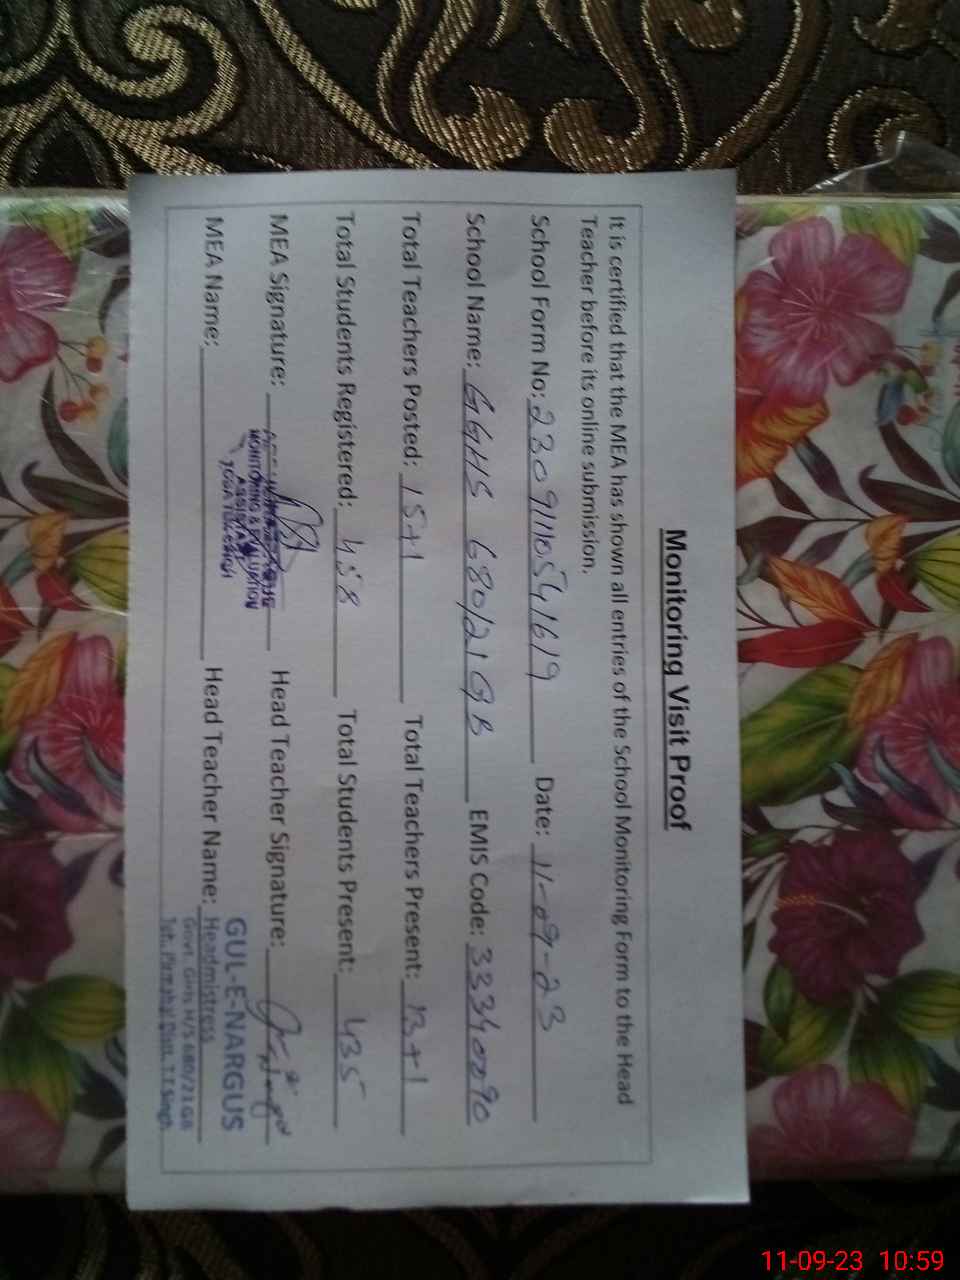 Monitoring Visit Proof
It is certified that the MEA has shown all entries of the School Monitoring Form to the Head
Teacher before its online submission.
School Form No: 2309110541619 Date: 11-09-23
School Name: GGHS 680/21 GB EMIS Code: 33340090
Total Teachers Posted: 15+1 Total Teachers Present: 13+1
Total Students Registered: 458 Total Students Present: 435
MEA Signature: Head Teacher Signature:
MONITORING & EVALUATION
ASSISTANT
TOBA TEK SINGH
GUL-E-NARGUS
MEA Name: Head Teacher Name: Headmistress
Govt. Girls H/S 680/21 GB
Teh. Pirmahal Distt. T.T.Singh
11-09-23 10:59